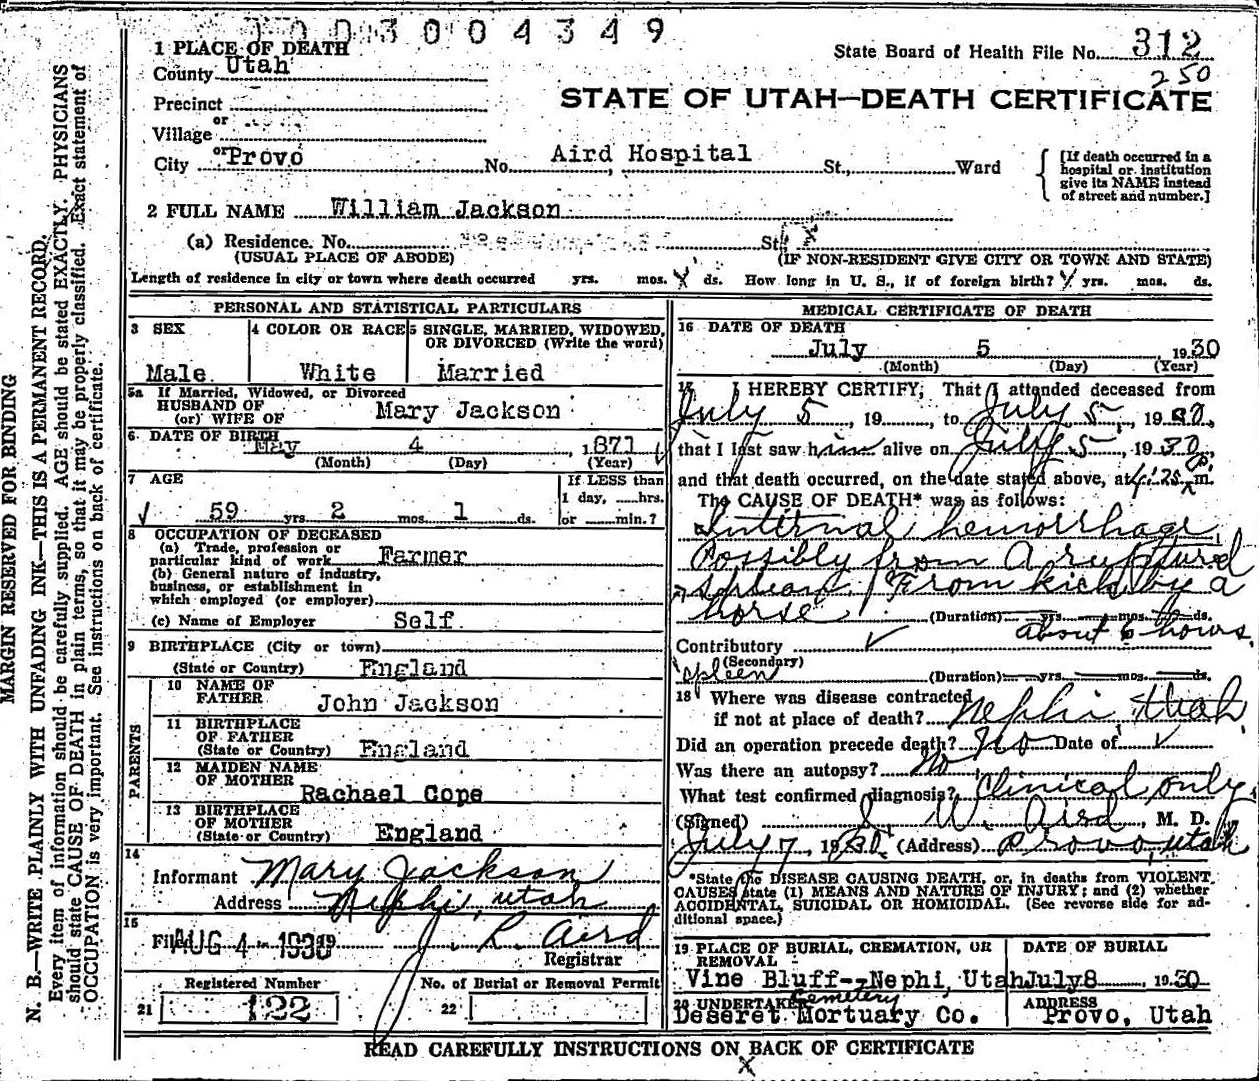 0003004349
State Board of Health File No. 312
250
STATE OF UTAH—DEATH CERTIFICATE
1 PLACE OF DEATH
County Utah
Precinct
or
Village
or
City Provo No. Aird Hospital St., Ward
[If death occurred in a hospital or institution give its NAME instead of street and number.]
2 FULL NAME William Jackson
(a) Residence. No. St.
(USUAL PLACE OF ABODE) (IF NON-RESIDENT GIVE CITY OR TOWN AND STATE)
Length of residence in city or town where death occurred yrs. mos. ds. How long in U. S., if of foreign birth? yrs. mos. ds.
PERSONAL AND STATISTICAL PARTICULARS
3 SEX
Male
4 COLOR OR RACE
White
5 SINGLE, MARRIED, WIDOWED, OR DIVORCED (Write the word)
Married
5a If Married, Widowed, or Divorced
HUSBAND OF
(or) WIFE OF Mary Jackson
6 DATE OF BIRTH
May 4, 1871
(Month) (Day) (Year)
7 AGE
59 yrs. 2 mos. 1 ds.
If LESS than
1 day, ......hrs.
or ......min.?
8 OCCUPATION OF DECEASED
(a) Trade, profession or
particular kind of work Farmer
(b) General nature of industry,
business, or establishment in
which employed (or employer)
(c) Name of Employer Self
9 BIRTHPLACE (City or town)
(State or Country) England
PARENTS
10 NAME OF
FATHER John Jackson
11 BIRTHPLACE
OF FATHER
(State or Country) England
12 MAIDEN NAME
OF MOTHER
Rachael Cope
13 BIRTHPLACE
OF MOTHER
(State or Country) England
14
Informant Mary Jackson
Address Nephi, Utah
15
Filed AUG 4 1930 J. L. Aird
Registrar
Registered Number
21 122
No. of Burial or Removal Permit
22
MEDICAL CERTIFICATE OF DEATH
16 DATE OF DEATH
July 5 1930
(Month) (Day) (Year)
17 I HEREBY CERTIFY, That I attended deceased from
July 5, 19, to July 5, 1930,
that I last saw him alive on July 5, 1930,
and that death occurred, on the date stated above, at 4:25 P m.
The CAUSE OF DEATH* was as follows:
Internal hemorrhage
Possibly from a ruptured
spleen. From kick by a
horse (Duration) yrs. mos. ds.
about 6 hours.
Contributory
(Secondary)
spleen (Duration) yrs. mos. ds.
18 Where was disease contracted
if not at place of death? Nephi, Utah
Did an operation precede death? No Date of
Was there an autopsy? No
What test confirmed diagnosis? Clinical only
(Signed) J. W. Aird, M. D.
July 7, 1930 (Address) Provo, Utah
*State the DISEASE CAUSING DEATH, or, in deaths from VIOLENT
CAUSES state (1) MEANS AND NATURE OF INJURY; and (2) whether
ACCIDENTAL, SUICIDAL OR HOMICIDAL. (See reverse side for ad-
ditional space.)
19 PLACE OF BURIAL, CREMATION, OR
REMOVAL
Vine Bluff--Nephi, Utah
Cemetery
DATE OF BURIAL
July 8 1930
20 UNDERTAKER
Deseret Mortuary Co.
ADDRESS
Provo, Utah
READ CAREFULLY INSTRUCTIONS ON BACK OF CERTIFICATE
MARGIN RESERVED FOR BINDING
N. B.—WRITE PLAINLY WITH UNFADING INK—THIS IS A PERMANENT RECORD.
Every item of information should be carefully supplied. AGE should be stated EXACTLY. PHYSICIANS
should state CAUSE OF DEATH in plain terms, so that it may be properly classified. Exact statement of
OCCUPATION is very important. See instructions on back of certificate.